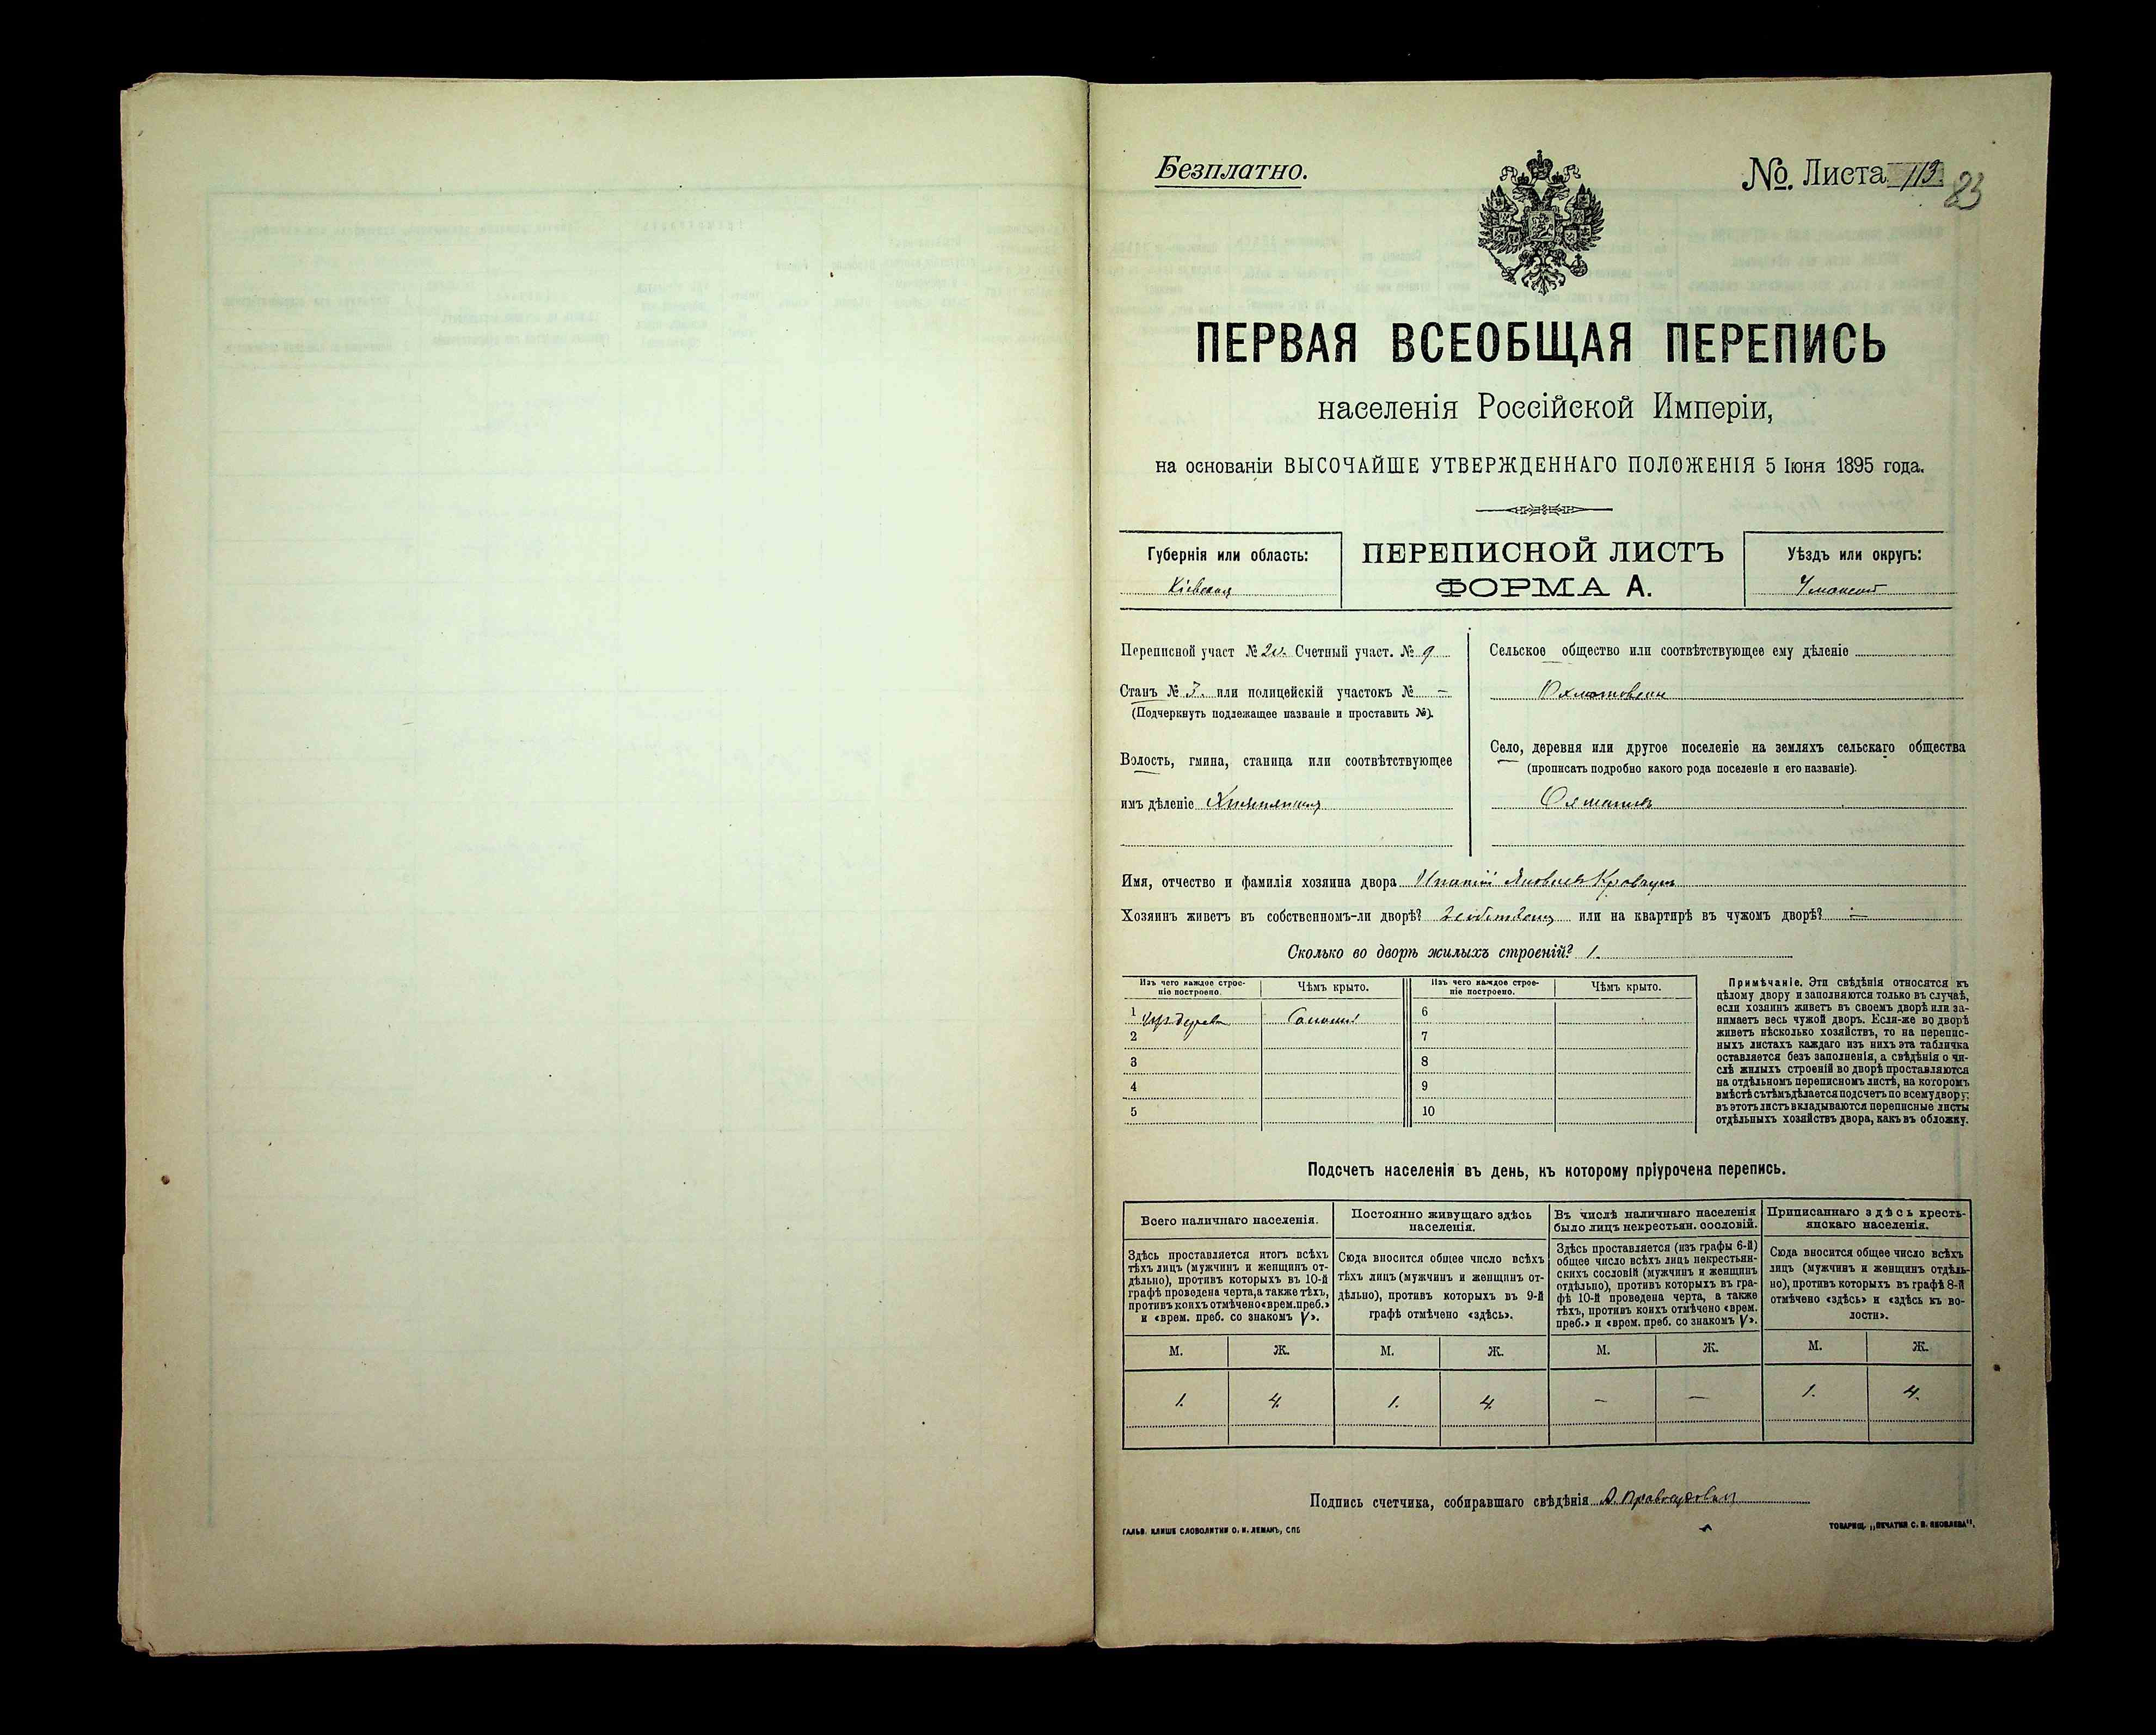 Безплатно.
№. Листа 113
23
ПЕРВАЯ ВСЕОБЩАЯ ПЕРЕПИСЬ
населенія Россійской Имперіи,
на основаніи ВЫСОЧАЙШЕ УТВЕРЖДЕННАГО ПОЛОЖЕНІЯ 5 Іюня 1895 года.
Губернія или область:
Кіевская
ПЕРЕПИСНОЙ ЛИСТЪ
ФОРМА А.
Уѣздъ или округъ:
Уманскій
Переписной участ № 20. Счетный участ. № 9
Станъ № 3. или полицейскій участокъ № —
(Подчеркнуть подлежащее названіе и проставить №).
Волость, гмина, станица или соотвѣтствующее
имъ дѣленіе
Сельское общество или соотвѣтствующее ему дѣленіе
Село, деревня или другое поселеніе на земляхъ сельскаго общества
(прописать подробно какого рода поселеніе и его названіе).
Имя, отчество и фамилія хозяина двора Ипатій Яковлевъ Кравецъ
Хозяинъ живетъ въ собственномъ-ли дворѣ? или на квартирѣ въ чужомъ дворѣ? —
Сколько во дворѣ жилыхъ строеній? 1.
Изъ чего каждое строе-
ніе построено.
Чѣмъ крыто.
Изъ чего каждое строе-
ніе построено.
Чѣмъ крыто.
1 Соломой 6
2 7
3 8
4 9
5 10
Примѣчаніе. Эти свѣдѣнія относятся къ
цѣлому двору и заполняются только въ случаѣ,
если хозяинъ живетъ въ своемъ дворѣ или за-
нимаетъ весь чужой дворъ. Если-же во дворѣ
живетъ нѣсколько хозяйствъ, то на перепис-
ныхъ листахъ каждаго изъ нихъ эта табличка
оставляется безъ заполненія, а свѣдѣнія о чи-
слѣ жилыхъ строеній во дворѣ проставляются
на отдѣльномъ переписномъ листѣ, на которомъ
вмѣстѣ съ тѣмъ дѣлается подсчетъ по всему двору;
въ этотъ листъ вкладываются переписные листы
отдѣльныхъ хозяйствъ двора, какъ въ обложку.
Подсчетъ населенія въ день, къ которому пріурочена перепись.
Всего наличнаго населенія.
Здѣсь проставляется итогъ всѣхъ
тѣхъ лицъ (мужчинъ и женщинъ от-
дѣльно), противъ которыхъ въ 10-й
графѣ проведена черта, а также тѣхъ,
противъ коихъ отмѣчено «врем. преб.»
и «врем. преб. со знакомъ V».
Постоянно живущаго здѣсь
населенія.
Сюда вносится общее число всѣхъ
тѣхъ лицъ (мужчинъ и женщинъ от-
дѣльно), противъ которыхъ въ 9-й
графѣ отмѣчено «здѣсь».
Въ числѣ наличнаго населенія
было лицъ некрестьян. сословій.
Здѣсь проставляется (изъ графы 6-й)
общее число всѣхъ лицъ некрестьян-
скихъ сословій (мужчинъ и женщинъ
отдѣльно), противъ которыхъ въ гра-
фѣ 10-й проведена черта, а также
тѣхъ, противъ коихъ отмѣчено «врем.
преб.» и «врем. преб. со знакомъ V».
Приписаннаго здѣсь кресть-
янскаго населенія.
Сюда вносится общее число всѣхъ
лицъ (мужчинъ и женщинъ отдѣль-
но), противъ которыхъ въ графѣ 8-й
отмѣчено «здѣсь» и «здѣсь къ во-
лости».
М. Ж. М. Ж. М. Ж. М. Ж.
1. 4. 1. 4. — — 1. 4.
Подпись счетчика, собиравшаго свѣдѣнія
ГАЛЬВ. КЛИШЕ СЛОВОЛИТНИ О. И. ЛЕМАНЪ, СПБ
ТОВАРИЩ. „ПЕЧАТНЯ С. П. ЯКОВЛЕВА".